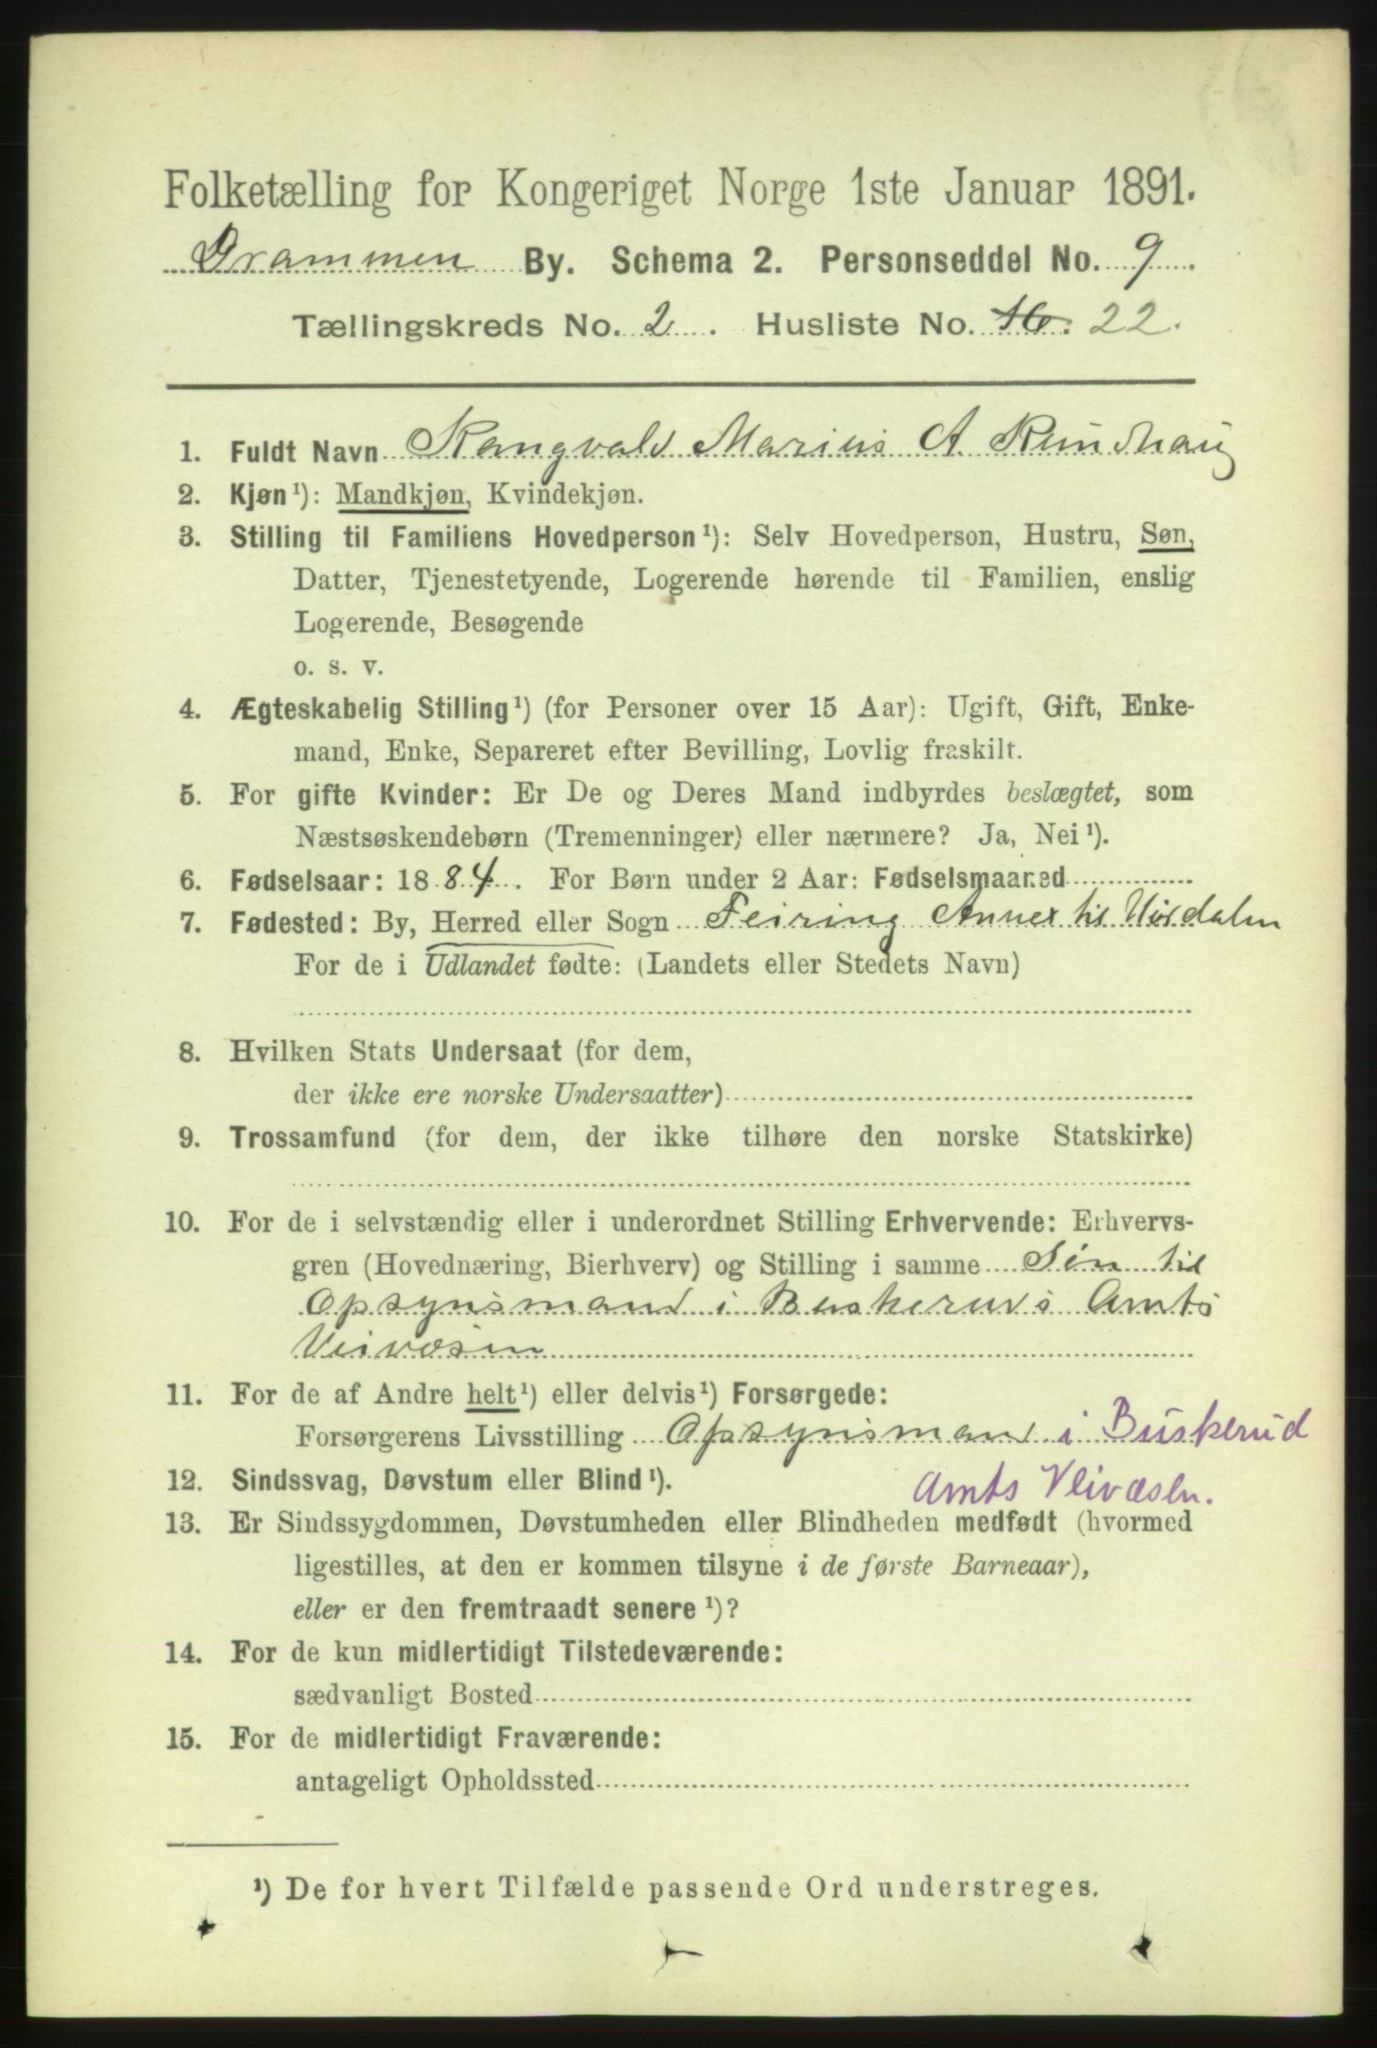 Folketælling for Kongeriget Norge 1ste Januar 1891.
Drammen By. Schema 2. Personseddel No. 9
Tællingskreds No. 2. Husliste No. 16. 22.
1. Fuldt Navn Rangvald Marius A Rundhaug
2. Kjøn¹): Mandkjøn, Kvindekjøn.
3. Stilling til Familiens Hovedperson¹): Selv Hovedperson, Hustru, Søn,
Datter, Tjenestetyende, Logerende hørende til Familien, enslig
Logerende, Besøgende
o. s. v.
4. Ægteskabelig Stilling¹) (for Personer over 15 Aar): Ugift, Gift, Enke-
mand, Enke, Separeret efter Bevilling, Lovlig fraskilt.
5. For gifte Kvinder: Er De og Deres Mand indbyrdes beslægtet, som
Næstsøskendebørn (Tremenninger) eller nærmere? Ja, Nei¹).
6. Fødselsaar: 1884. For Børn under 2 Aar: Fødselsmaaned
7. Fødested: By, Herred eller Sogn Feiring Annex til
For de i Udlandet fødte: (Landets eller Stedets Navn)
8. Hvilken Stats Undersaat (for dem,
der ikke ere norske Undersaatter)
9. Trossamfund (for dem, der ikke tilhøre den norske Statskirke)
10. For de i selvstændig eller i underordnet Stilling Erhvervende: Erhvervs-
gren (Hovednæring, Bierhverv) og Stilling i samme Søn til
Opsynsmand i Buskeruds Amts
Veivæsen
11. For de af Andre helt¹) eller delvis¹) Forsørgede:
Forsørgerens Livsstilling Opsynsmand i Buskerud
Amts Veivæsen.
12. Sindssvag, Døvstum eller Blind¹).
13. Er Sindssygdommen, Døvstumheden eller Blindheden medfødt (hvormed
ligestilles, at den er kommen tilsyne i de første Barneaar),
eller er den fremtraadt senere¹)?
14. For de kun midlertidigt Tilstedeværende:
sædvanligt Bosted
15. For de midlertidigt Fraværende:
antageligt Opholdssted
¹) De for hvert Tilfælde passende Ord understreges.